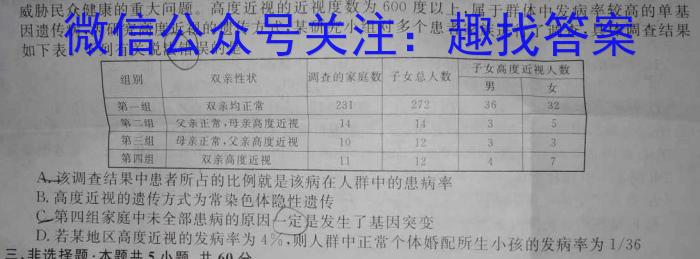 威胁民众健康的重大问题。高度近视的近视度数为600度以上,属于群体中发病率较高的单基
因遗传
调查结果
如下表
微信公众号关注:趣找答案
组别 双亲性状 调查的家庭数 子女总人数 子女高度近视人数
男 女
第一组 双亲均正常 231 272 36 32
第二组 父亲正常,母亲高度近视 14 14 3 5
第三组 母亲正常,父亲高度近视 10 12 3 3
第四组 双亲高度近视 11 12 4 7
A.该调查结果中患者所占的比例就是该病在人群中的患病率
B.高度近视的遗传方式为常染色体隐性遗传
C.第四组家庭中未全部患病的原因一定是发生了基因突变
D.若某地区高度近视的发病率为4%,则人群中正常个体婚配所生小孩的发病率为1/36
三、非选择题:本题共5小题,共60分